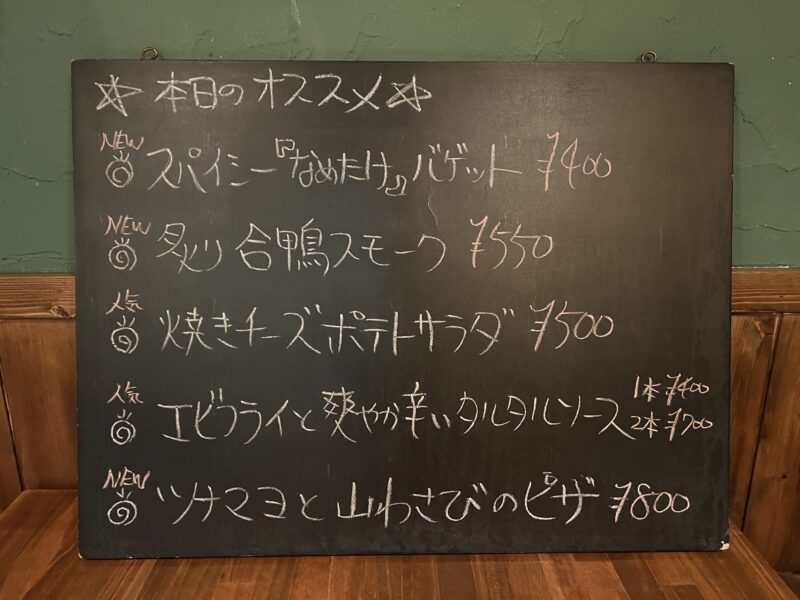 ☆ 本日のオススメ☆
NEW
スパイシー『なめたけ』バゲット ¥400
NEW
炙り 合鴨スモーク ¥550
人気
焼きチーズポテトサラダ ¥500
人気
エビフライと爽やか辛いタルタルソース 1本 ¥400
2本 ¥700
NEW
ツナマヨと山わさびのピザ ¥800